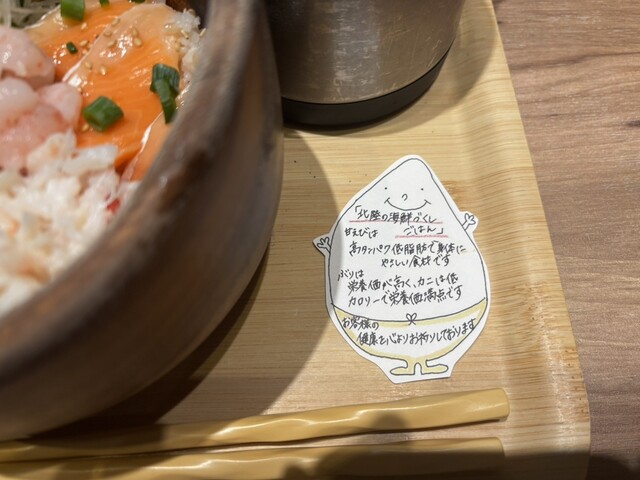 「北陸の海鮮づくし
ごはん」
甘えびは
高タンパク低脂肪で身体に
やさしい食材です
ぶりは
栄養価が高く、カニは低
カロリーで栄養価満点です
お客様の
健康を心よりお祈りしております